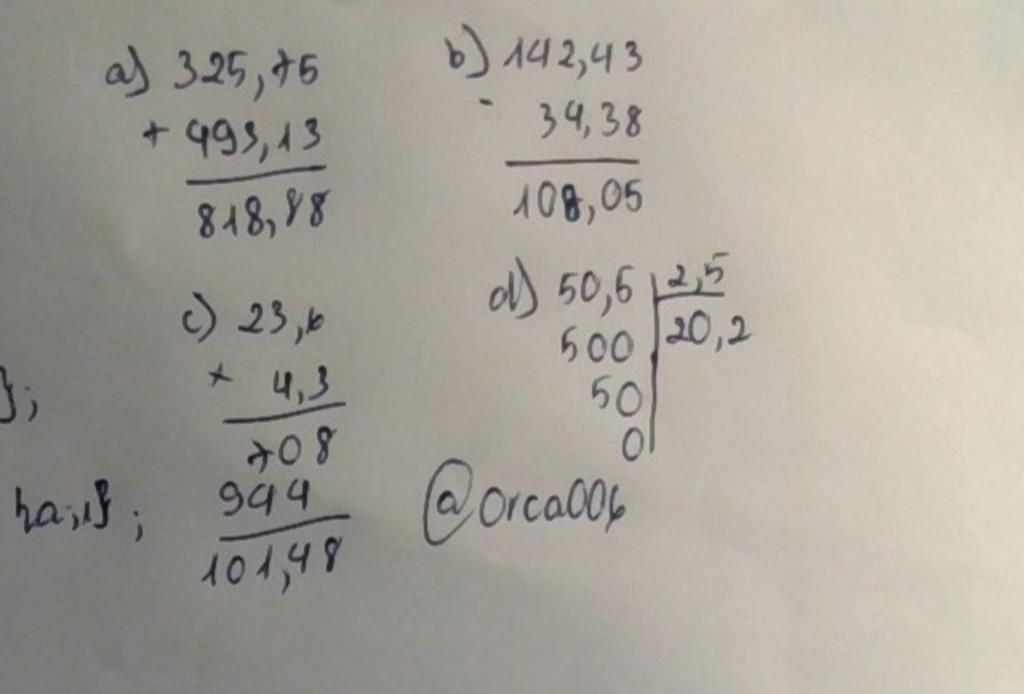 a) 325,75
+ 493,13
818,88
b) 142,43
- 34,38
108,05
c) 23,6
× 4,3
708
944
101,48
d) 50,5 2,5
500 20,2
50
0
};
ha,1};
@orca006